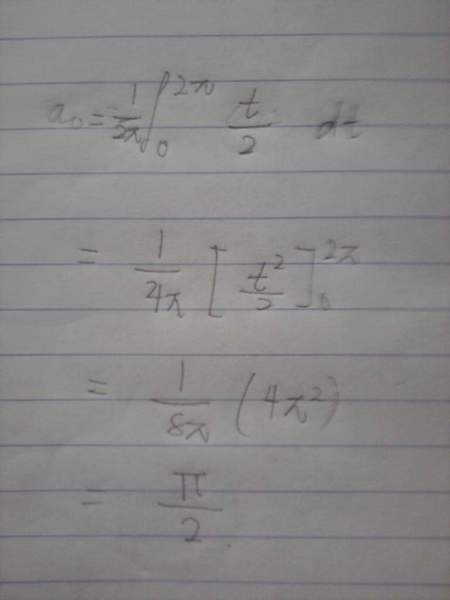 a₀ = 1/2π ∫₀^2π t/2 dt
= 1/4π [t²/2]₀^2π
= 1/8π (4π²)
= π/2